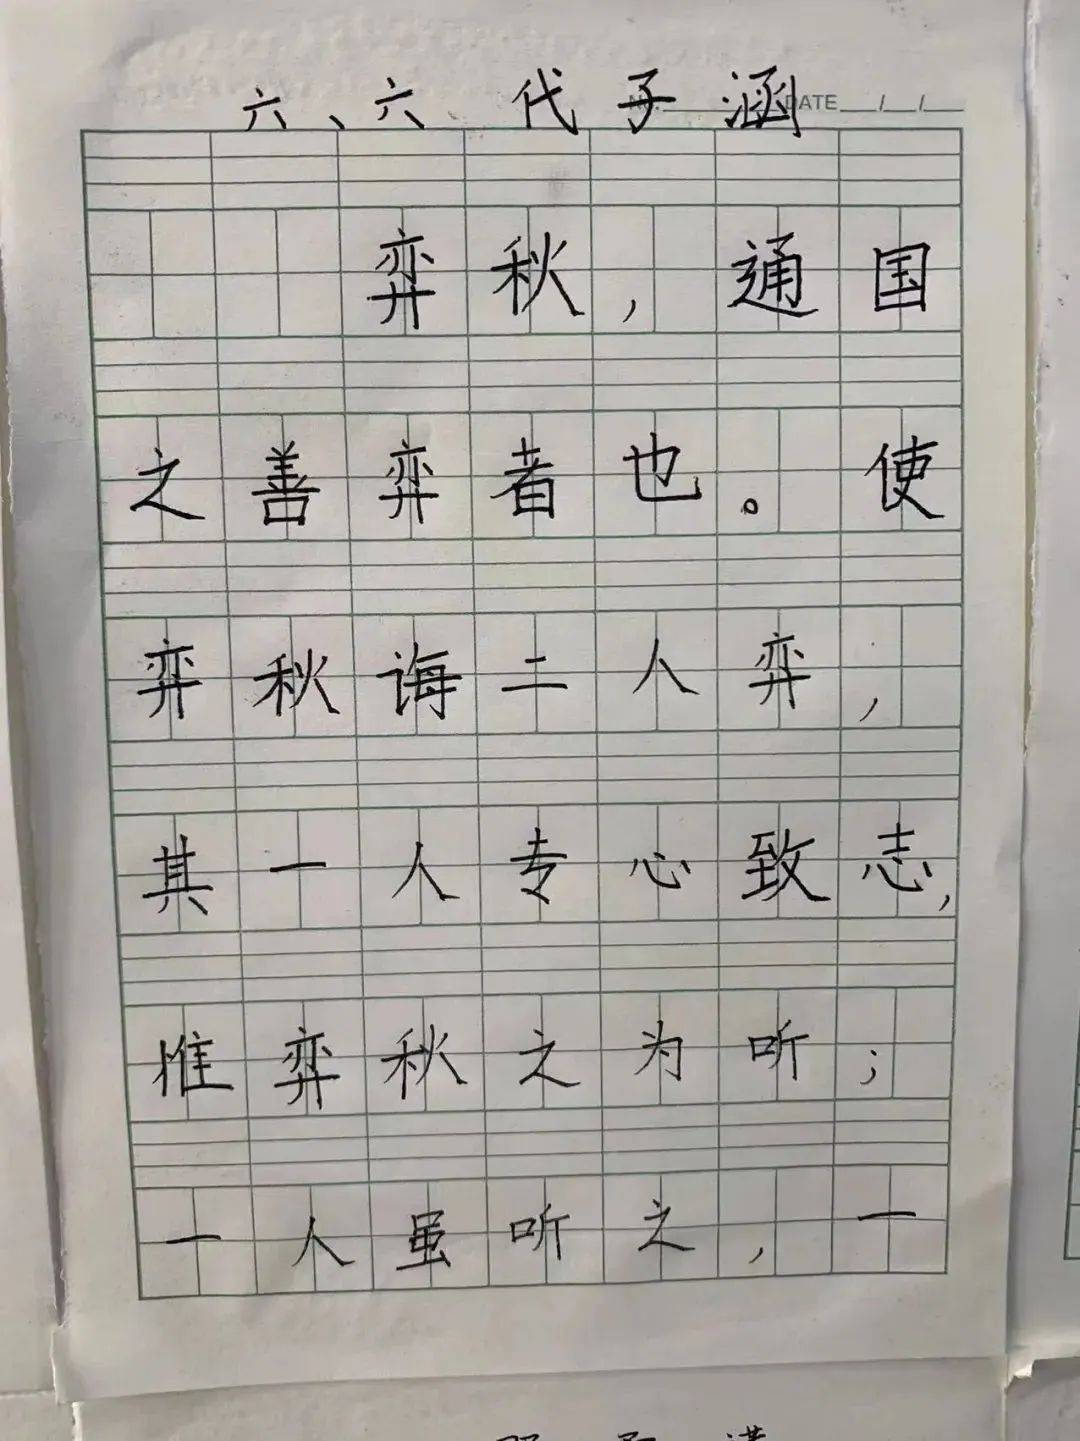 六、六 代子涵
DATE __/__/__
弈秋，通国
之善弈者也。使
弈秋诲二人弈，
其一人专心致志，
惟弈秋之为听；
一人虽听之，一